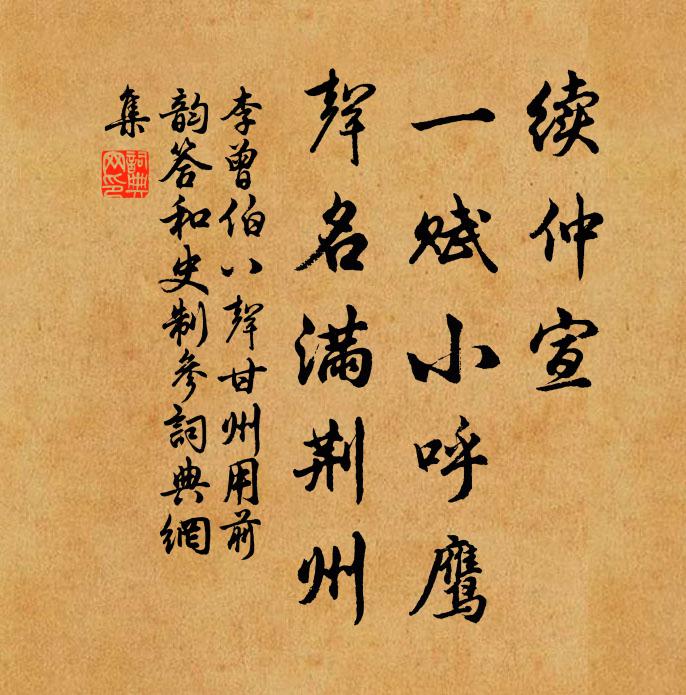 续仲宣
一赋小呼鹰
聲名满荆州
李曾伯八聲甘州用前
韵答和史制參詞典網
集
詞典
网印